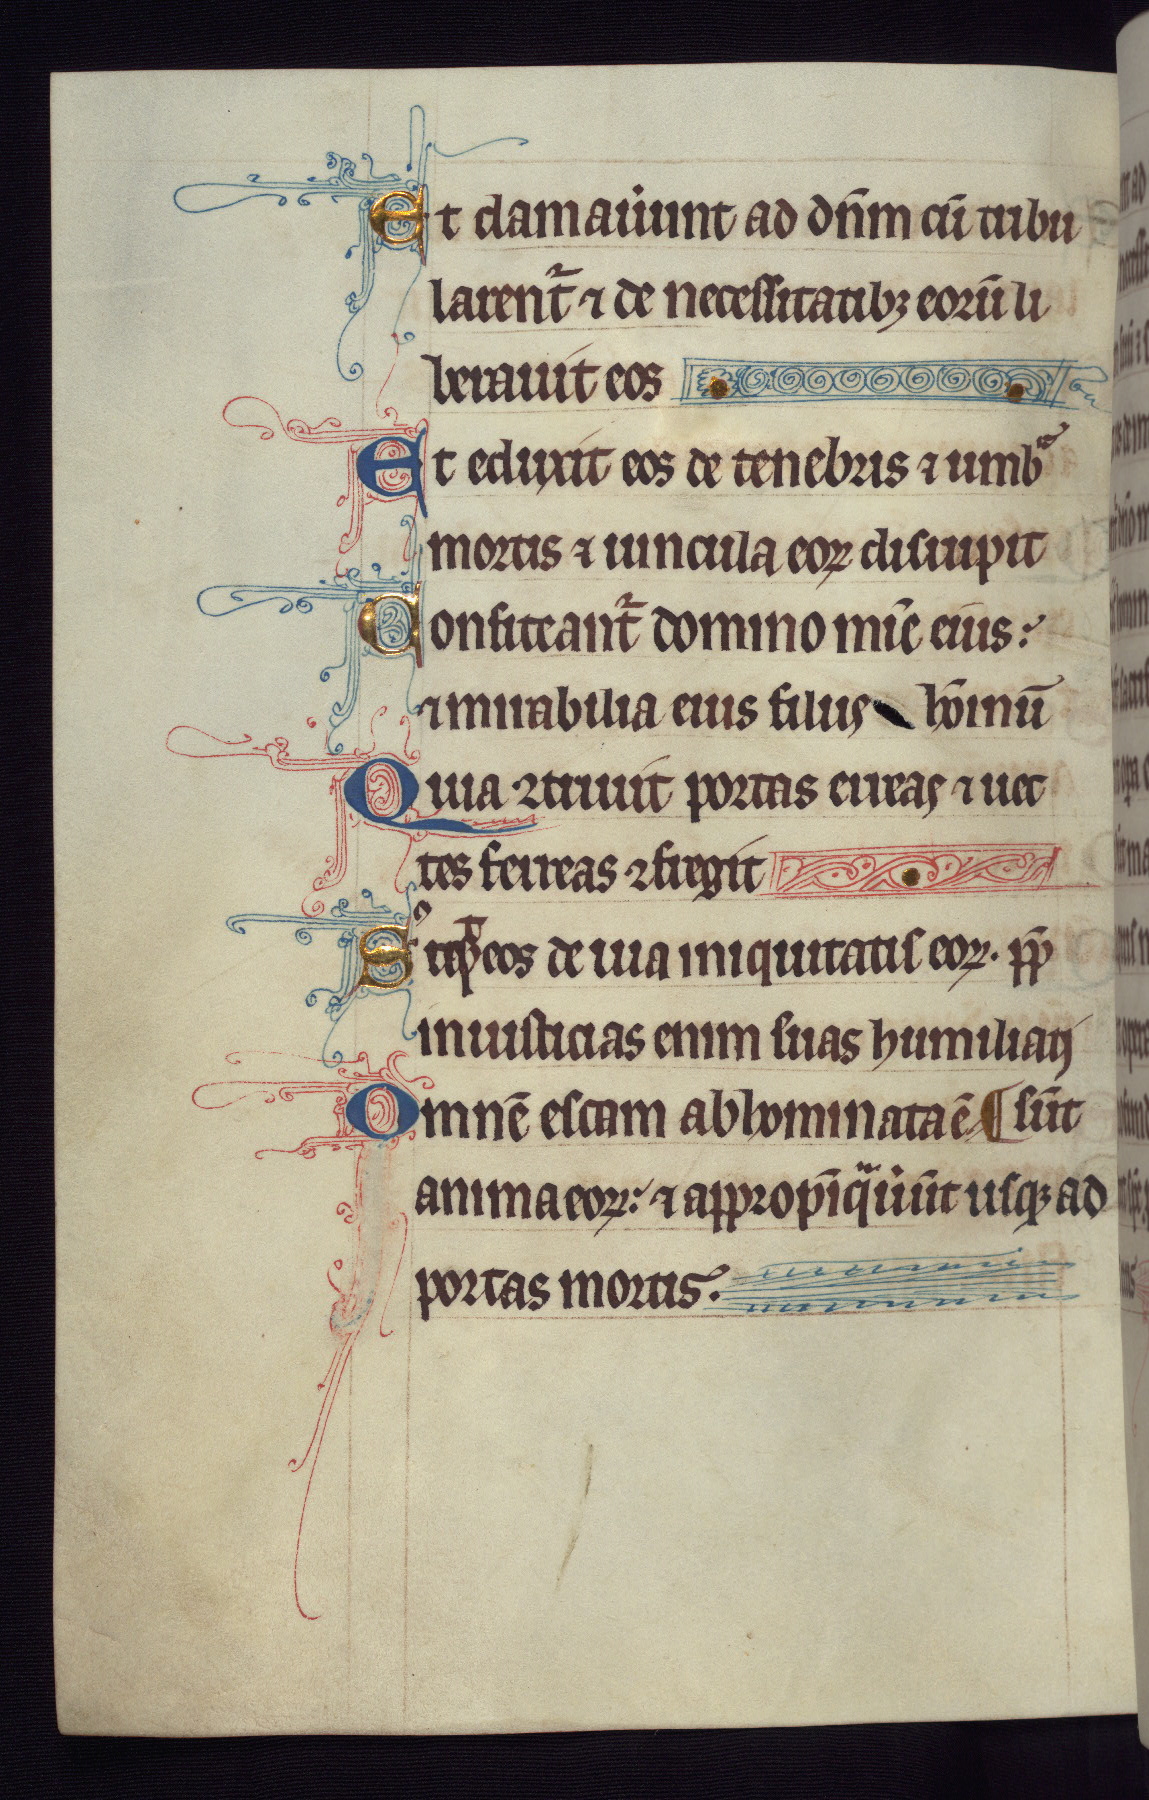 Et clamauͥunt ad dn̄m cū tribu
larent᷑ ⁊ de necessitatibꝫ eorū li
berauit eos
Et eduxit eos de tenebris ⁊ umbᵃ
mortis ⁊ uincula eoꝝ disrupit
Confiteant᷑ domino mīe eius:
⁊ mirabilia eius filiis hōīnū
Quia ↄtriuit portas ereas ⁊ uec
tes ferreas ↄfregit
Suscepit eos de uia iniquitatis eoꝝ. ꝓpt̄
iniusticias enim suas humiliati
Omnē escam abhominata ē ¶ sūt
anima eoꝝ: ⁊ appropīqᵃuͥūt usqꝫ ad
portas mortis.